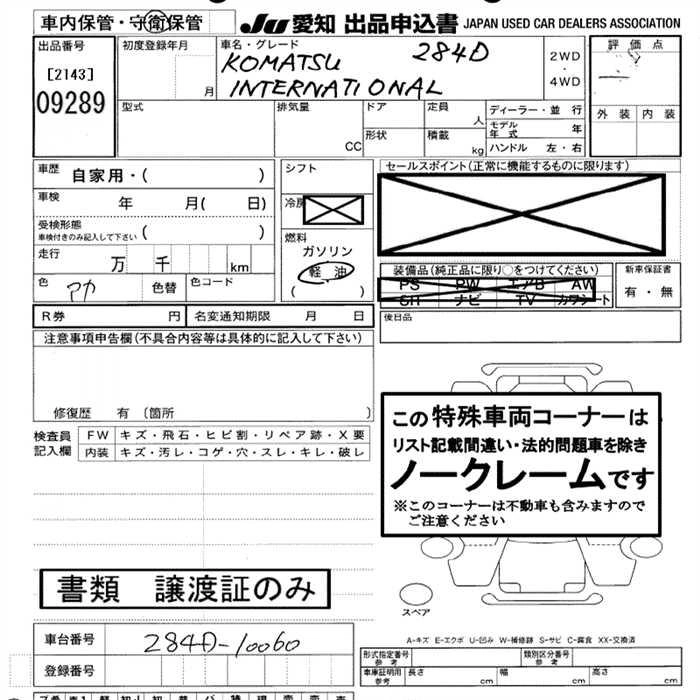 車内保管・守衛保管 JU 愛知 出品申込書 JAPAN USED CAR DEALERS ASSOCIATION
出品番号 初度登録年月 車名・グレード 284D 2WD・4WD 評価点
[2143] KOMATSU
09289 月 INTERNATIONAL
型式 排気量 ドア 定員 人 ディーラー・並行 外装 内装
モデル年式 年
CC 形状 積載 kg ハンドル 左・右
車歴 自家用・( ) シフト セールスポイント(正常に機能するものに限ります)
車検 年 月( 日) 冷房
受検形態
車検付きのみ記入して下さい ( ) 燃料
走行 万 千 km ガソリン
軽油
( )
装備品(純正品に限り○をつけてください) 新車保証書
色 アカ 色替 色コード PS PW エアB AW 有・無
SR ナビ TV カワシート
R券 円 名変通知期限 月 日 後日品
注意事項申告欄(不具合内容等は具体的に記入して下さい)
修復歴 有 〔箇所 〕
検査員記入欄 FW キズ・飛石・ヒビ割・リペア跡・X要
内装 キズ・汚レ・コゲ・穴・スレ・キレ・破レ
この特殊車両コーナーは
リスト記載間違い・法的問題車を除き
ノークレームです
※このコーナーは不動車も含みますので
ご注意ください
書類 譲渡証のみ
スペア
A-キズ E-エクボ U-凹み W-補修跡 S-サビ C-腐食 XX-交換済
車台番号 284D-10060
登録番号
形式指定番号 参考 類別区分番号 参考
車庫証明用 参考 長さ cm 幅 cm 高さ cm